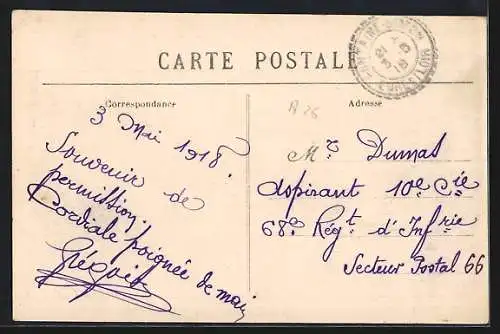 CARTE POSTALE
Correspondance
Adresse
A 26
3 Mai 1918.
Souvenir de
permission.
Cordiale poignée de main
Grégoire
Mr. Dumas
aspirant 10e Cie
68e Régt d'Infrie
Secteur Postal 66